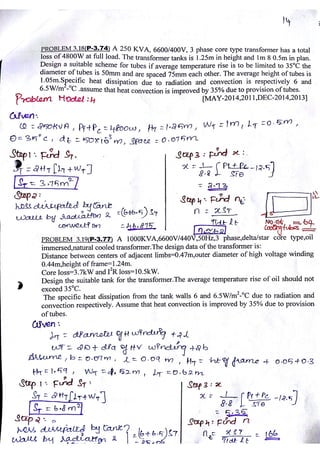 14
PROBLEM 3.18(P-3.74) A 250 KVA, 6600/400V, 3 phase core type transformer has a total
loss of 4800W at full load. The transformer tanks is 1.25m in height and 1m & 0.5m in plan.
Design a suitable scheme for tubes if average temperature rise is to be limited to 35°C the
diameter of tubes is 50mm and are spaced 75mm each other. The average height of tubes is
1.05m.Specific heat dissipation due to radiation and convection is respectively 6 and
6.5W/m²-°C .assume that heat convection is improved by 35% due to provision of tubes.
Problem Model :4
[MAY-2014,2011,DEC-2014,2013]
Given:
Q = 250KVA, Pi+Pc = 4800W, HT = 1.25m, WT = 1m, LT = 0.5m,
θ = 35°C, dt = 50x10⁻³m, space = 0.075m
Step 1: Find ST.
ST = 2HT [LT+WT]
ST = 3.75m²
Step 2:
Loss dissipated by tank
walls by radiation &
convection
= (6+6.5) ST
= 46.875
Step 3: Find x:
x = 1/8.8 [Pi+Pc/STθ - 12.5]
= 2.73
Step 4: Find nt:
n = xST/πdt lt
No. of cooling tubes = 62
PROBLEM 3.19(P-3.77) A 1000KVA,6600V/440V,50Hz,3 phase,delta/star core type,oil
immersed,natural cooled transformer.The design data of the transformer is:
Distance between centers of adjacent limbs=0.47m,outer diameter of high voltage winding
0.44m,height of frame=1.24m.
Core loss=3.7kW and I²R loss=10.5kW.
Design the suitable tank for the transformer.The average temperature rise of oil should not
exceed 35°C.
The specific heat dissipation from the tank walls 6 and 6.5W/m²-°C due to radiation and
convection respectively. Assume that heat convection is improved by 35% due to provision
of tubes.
Given:
LT = diameter of H winding + 2L
WT = 2D + dia of HV winding + 2b
Assume, b = 0.07m, L = 0.09m, HT = ht of frame + 0.05+0.3
HT = 1.59, WT = 1.52m, LT = 0.62m
Step 1: Find ST:
ST = 2HT [LT+WT]
ST = 6.8m²
Step 2:
Loss dissipated by tank
walls by radiation &
= (6+6.5) ST
Step 3: x
x = 1/8.8 [Pi+Pc/STθ - 12.5]
= 5.35
Step 4: Find n
nt = xST/πdt lt = 166